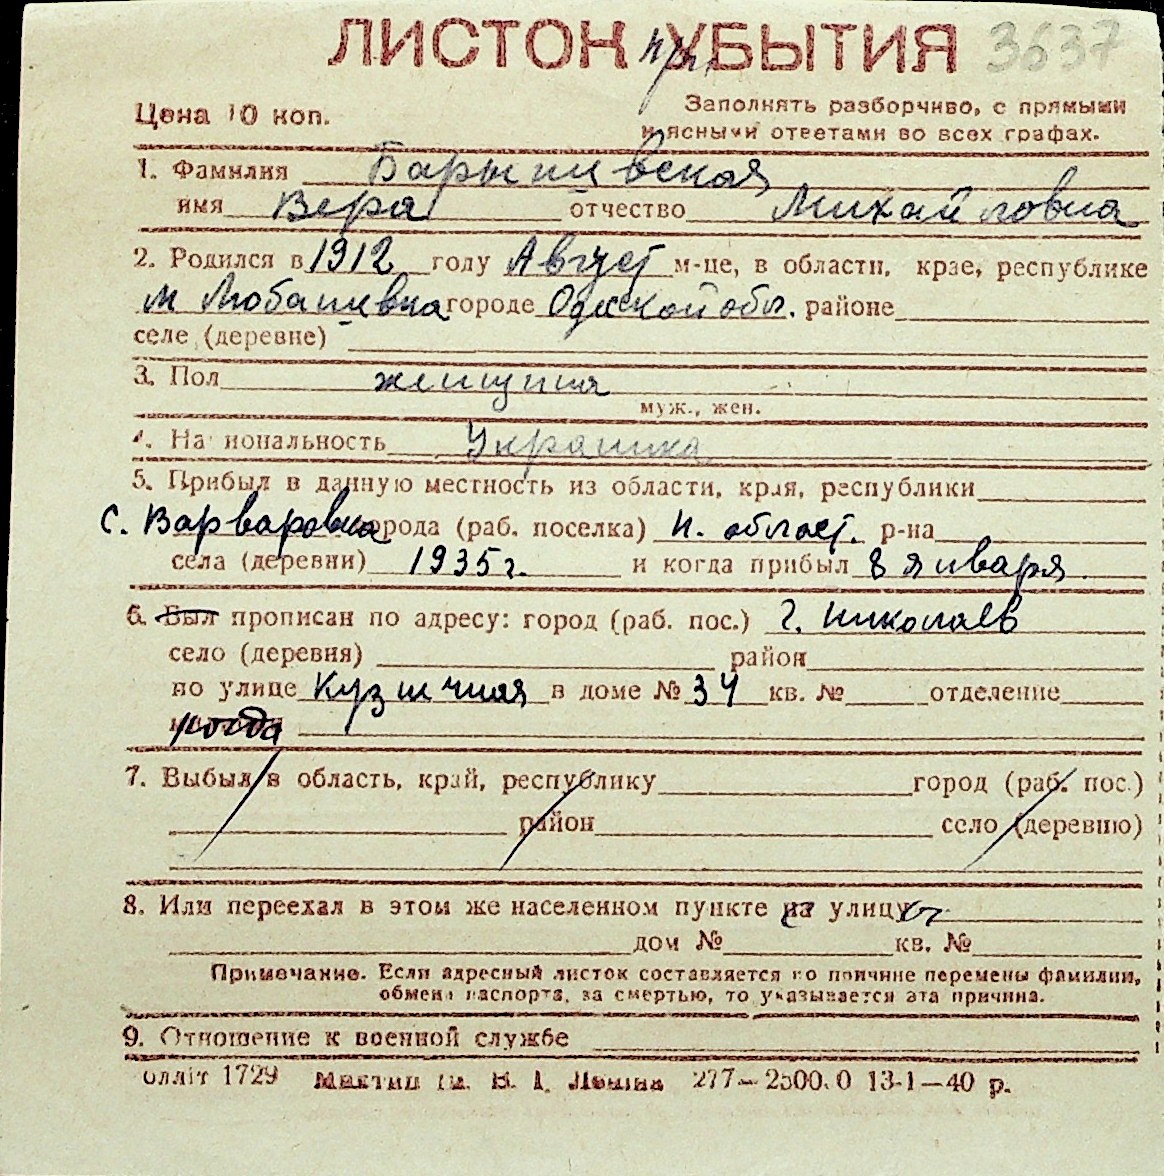 ЛИСТОК при УБЫТИЯ 3637
Цена 10 коп.
Заполнять разборчиво, с прямыми
и ясными ответами во всех графах.
1. Фамилия Барышевская
имя Вера отчество Михайловна
2. Родился в 1912 году Август м-це, в области, крае, республике
м Любашевка городе Одесской обл. районе
селе (деревне)
3. Пол женщина
муж., жен.
4. Национальность Украинка
5. Прибыл в данную местность из области, края, республики
с. Варваровка города (раб. поселка) Н. област. р-на
села (деревни) 1935 г. и когда прибыл 8 января
6. Был прописан по адресу: город (раб. пос.) г. Николаев
село (деревня) район
по улице Кузнечная в доме № 34 кв. № отделение
когда
7. Выбыл в область, край, республику город (раб. пос.)
район село (деревню)
8. Или переехал в этом же населенном пункте на улицу
дом № кв. №
Примечание. Если адресный листок составляется по причине перемены фамилии,
обмена паспорта, за смертью, то указывается эта причина.
9. Отношение к военной службе
олліт 1729 277—2500.0 13-1—40 р.